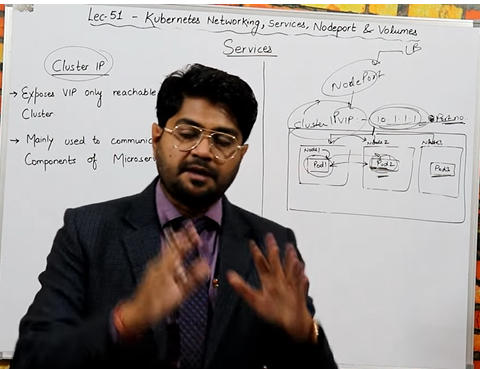 Lec-51 - Kubernetes Networking, Services, Nodeport & Volumes
Services
Cluster IP
→ Exposes VIP only reachable
Cluster
→ Mainly used to communic
Components of Microser
LB
NodePort
Cluster IP VIP - 10.1.1.1 Port no.
Node1 Node2 Node3
Pod1 Pod2 Pod3